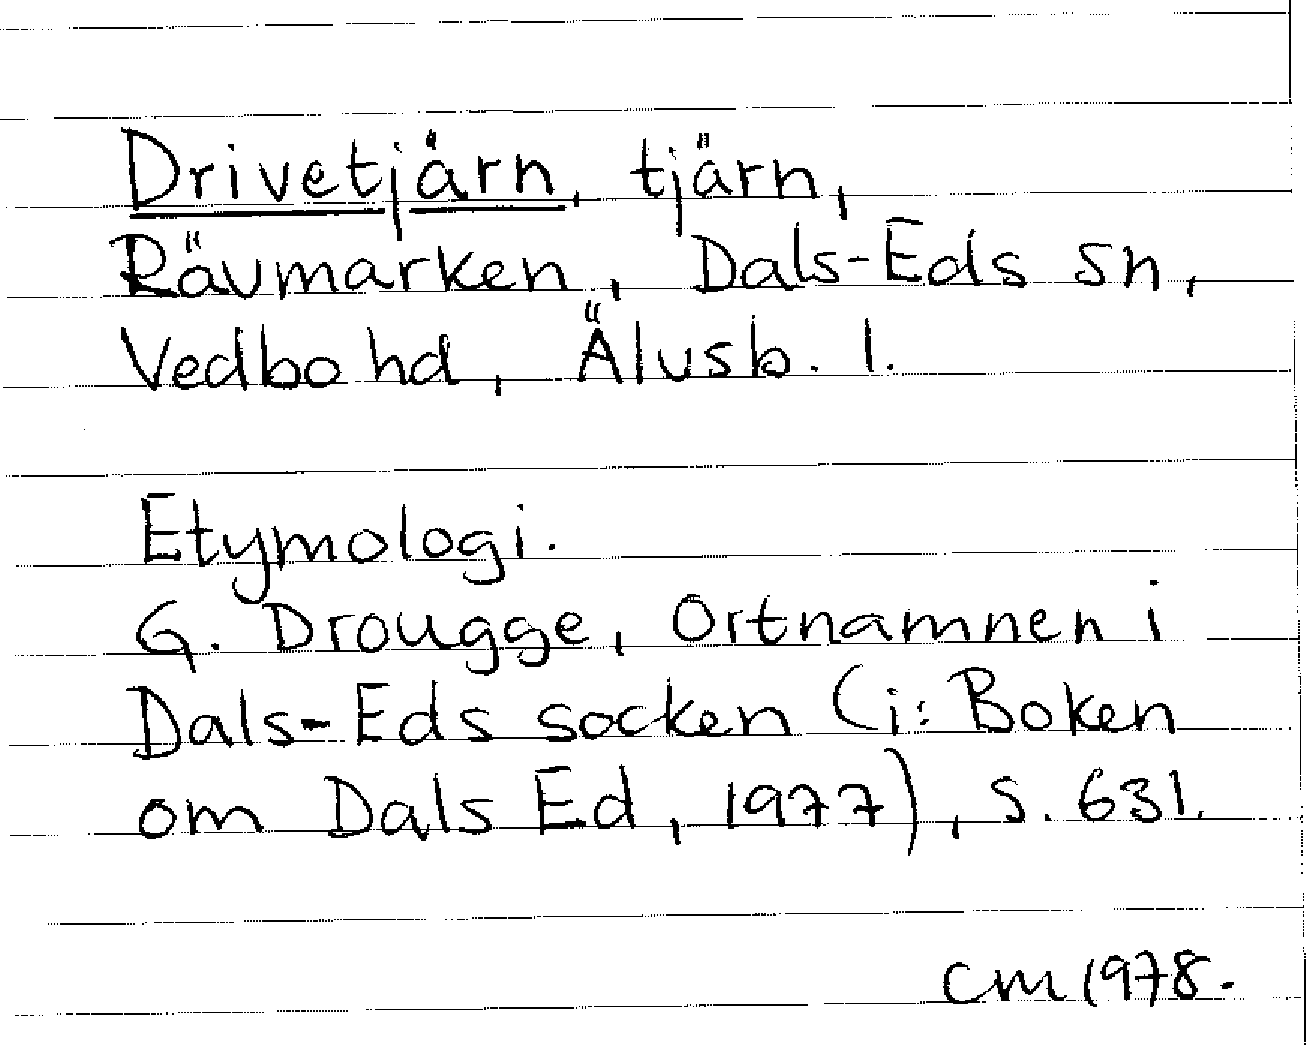 Drivetjärn, tjärn,
Rävmarken, Dals-Eds sn,
Vedbo hd, Älvsb. l.
Etymologi.
G. Drougge, Ortnamnen i
Dals-Eds socken (i: Boken
om Dals Ed, 1977), s. 631.
CM 1978.